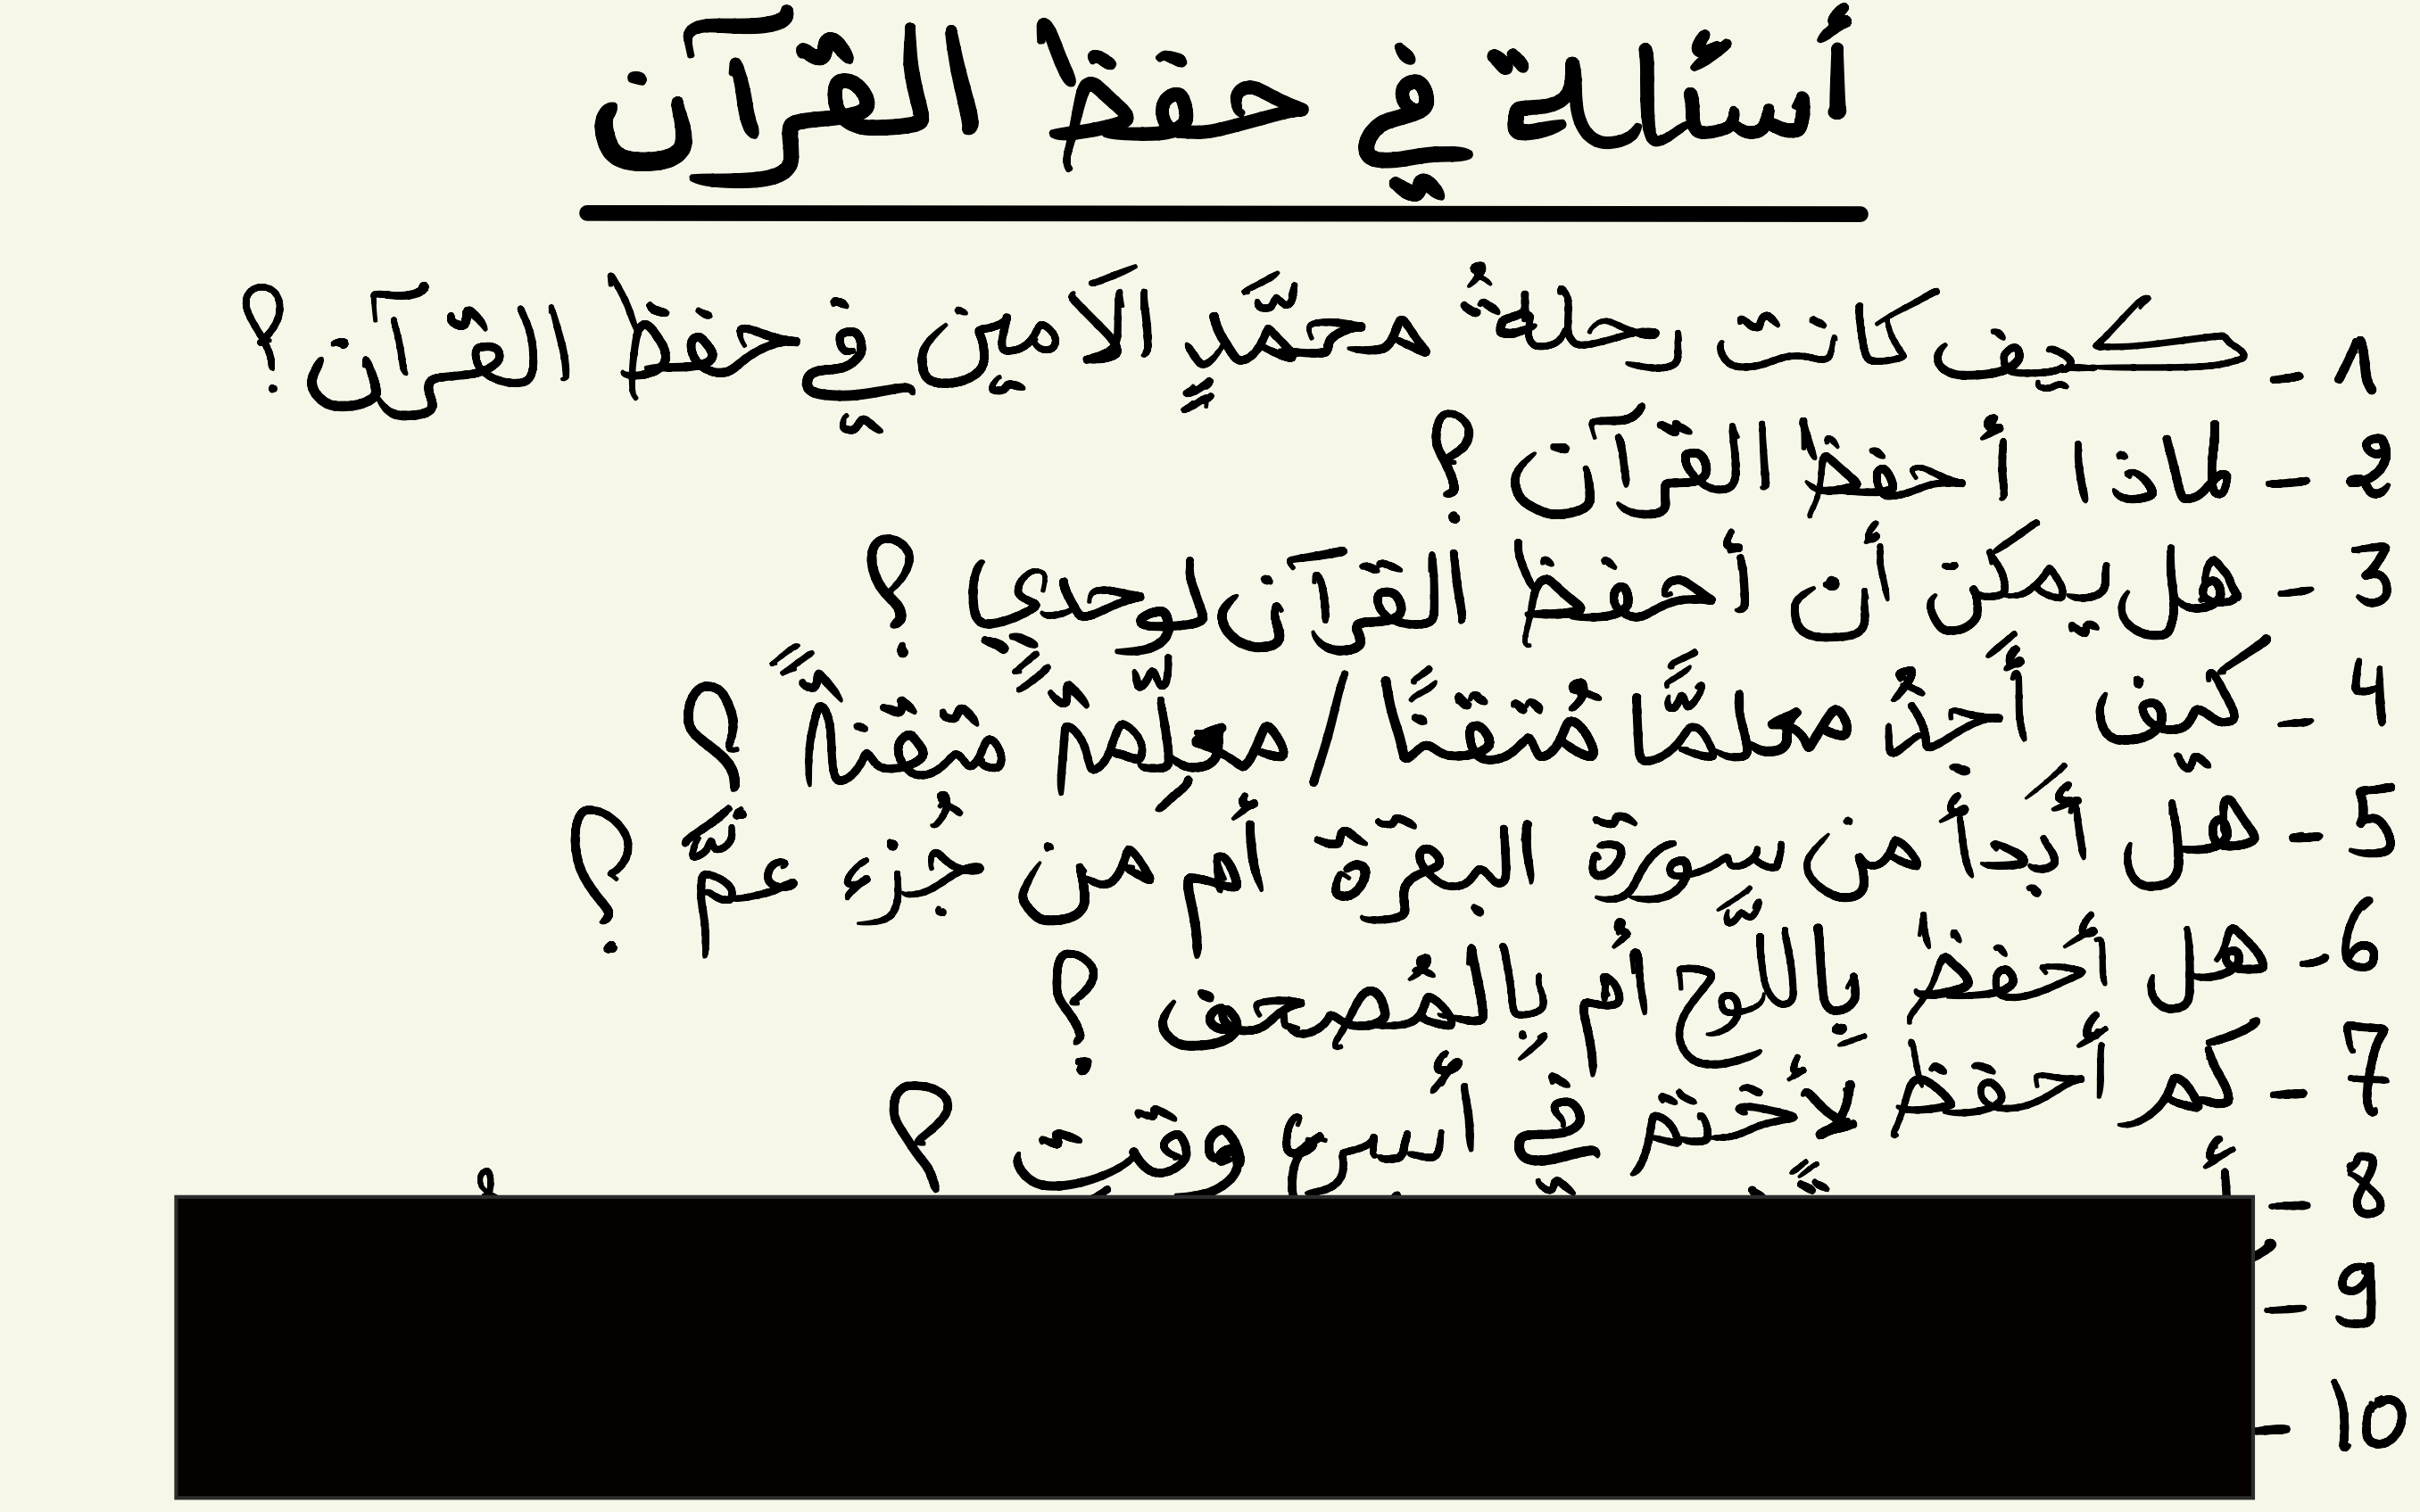 أسئلة في حفظ القرآن
1 - كيف كانت رحلةُ محمَّدٍ الَامين في حفظ القرآن؟
2 - لماذا أحفظ القرآن؟
3 - هل يمكن أن أحفظ القرآن لوحدي؟
4 - كيف أَجِدُ معلمًّا مُتقنًا / معلِّمةً متقنةً؟
5 - هل أَبدأ من سورة البقرة أم من جُزءِ عمَّ؟
6 - هل أَحفظ بِاللَّوح أم بِالمُصحف؟
7 - كم أَحفظ لأختم في أسرع وقت؟
8 -
9 -
10 -